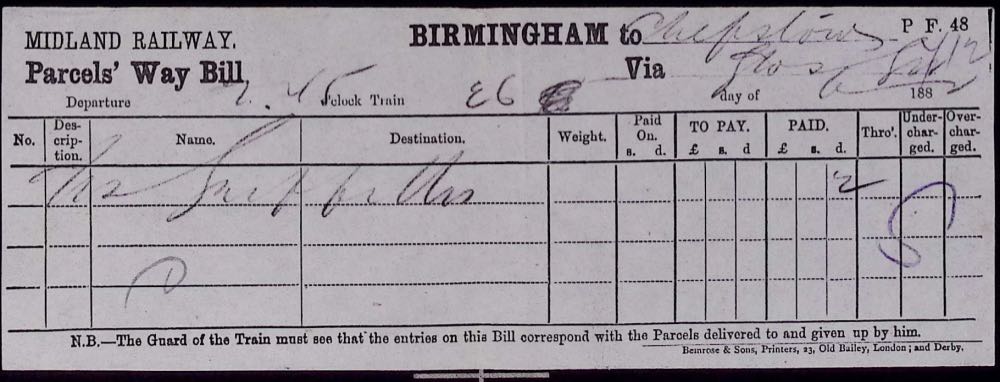 MIDLAND RAILWAY. BIRMINGHAM to Chepstow P F. 48
Parcels' Way Bill, Via Glos
Departure 7.45 o'clock Train 26 day of 188
No. Description. Name. Destination. Weight. Paid On. s. d. TO PAY. £ s. d PAID. £ s. d. Thro'. Under-char-ged. Over-char-ged.
Griffiths 2
N.B.—The Guard of the Train must see that the entries on this Bill correspond with the Parcels delivered to and given up by him.
Bemrose & Sons, Printers, 23, Old Bailey, London; and Derby.